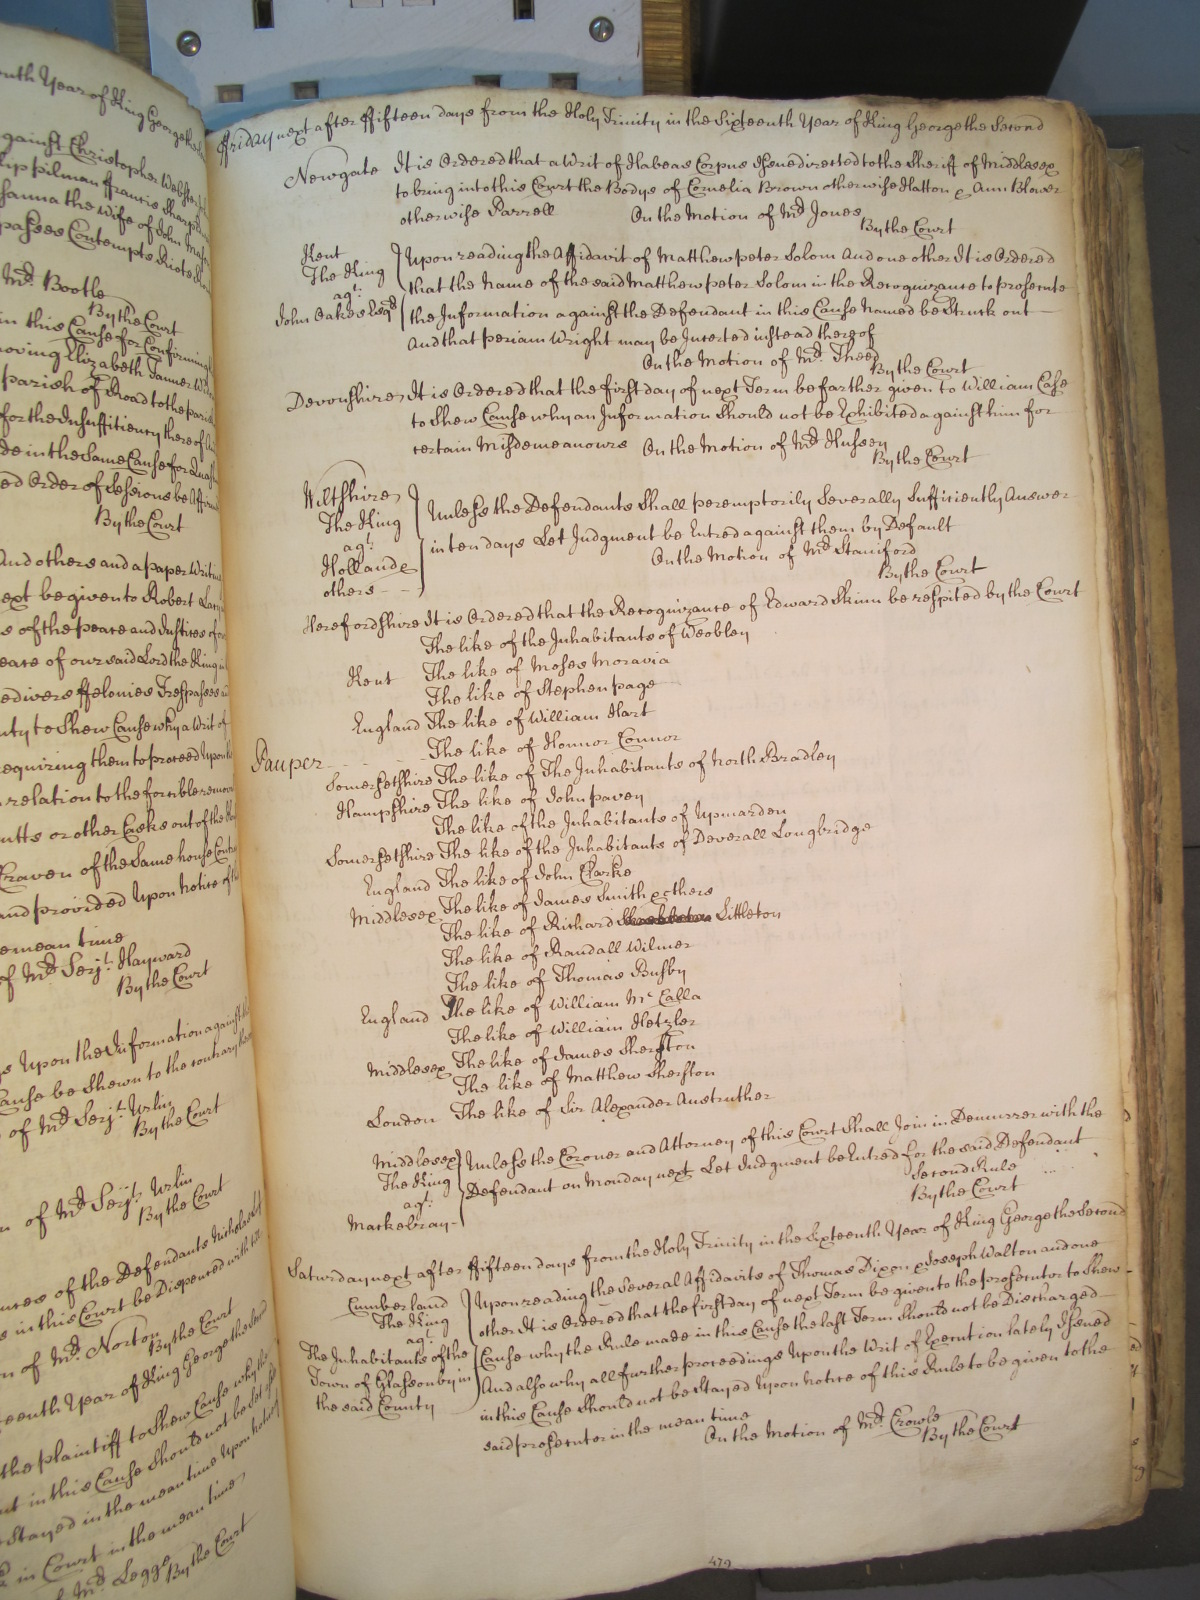 onth Year of King George the
against Christopher Webster
lip pilman ffrancis Sharp
hanna the wife of John
passes Contempts Riots
Mr. Bootle
By the Court
in this Cause for Confirming
moving Elizabeth Tanner
parish of Road to the parish
for the Insufficiency thereof
de in the Same Cause for Quash
ed Order of Sessions be Affirmed
By the Court
And others and a paper Writing
ext be given to Robert
s of the peace and Justices of
eace of our said Lord the King
e divers ffelonies Trespasses
nty to Shew Cause why a Writ of
requiring them to proceed upon
relation to the forcible remove
utts or other Casks out of the
Craven of the Same house
and provided Upon Notice of
e mean time
of Mr. Serjt. Hayward
By the Court
s Upon the Information against
Cause be Shewn to the contrary
of Mr. Serjt. Urlin
By the Court
n of Mr. Serjt. Urlin
By the Court
nces of the Defendants Nicholas
s in this Court be Dispenced with
n of Mr. Norton
By the Court
teenth Year of King George the Second
the plaintiff to Shew Cause why the
nt in this Cause Should not be Set
Stayed in the mean time Upon notice
in Court in the mean time
Mr. Legge
By the Court
ffriday next after ffifteen days from the Holy Trinity in the Sixteenth Year of King George the Second
Newgate It is Ordered that a Writ of Habeas Corpus Issue directed to the Sheriff of Middlesex
to bring into this Court the Bodys of Cornelia Brown otherwise Hatton & Ann Blower
otherwise Parrell On the Motion of Mr. Jones
By the Court
Kent
The King
agt.
John Oakes Esqr.
Upon reading the Affidavit of Matthew peter Solom And one other It is Ordered
that the Name of the said Matthew peter Solom in the Recognizance to prosecute
the Information against the Defendant in this Cause Named be Struck out
And that periam Wright may be Inserted instead thereof
On the Motion of Mr. Theed
By the Court
Devonshire It is Ordered that the first day of next Term be farther given to William Case
to Shew Cause why an Information Should not be Exhibited against him for
certain Misdemeanours On the Motion of Mr. Hussey
By the Court
Wiltshire
The King
agt.
Holland &
others
Unless the Defendants Shall peremptorily Severally Sufficiently Answer
in ten days Let Judgment be Entred against them by Default
On the Motion of Mr. Staniford
By the Court
Herefordshire It is Ordered that the Recognizance of Edward Skinn be respited by the Court
The like of the Inhabitants of Weobley
Kent The like of Moses Moravia
The like of Stephen page
England The like of William Hart
Pauper The like of Honnor Connor
Somersetshire The like of The Inhabitants of North Bradley
Hampshire The like of John paven
The like of the Inhabitants of Upmarden
Somersetshire The like of the Inhabitants of Deverall Longbridge
England The like of John Clarke
Middlesex The like of James Smith & others
The like of Richard Littleton
The like of Randall Wilmer
The like of Thomas Busby
England The like of William Mc Calla
The like of William Hetzler
Middlesex The like of James Sherston
The like of Matthew Sherston
London The like of Sir Alexander Anstruther
Middlesex
The King
agt.
Mackebray
Unless the Coroner and Attorney of this Court Shall Join in Demurrer with the
Defendant on Monday next Let Judgment be Entred for the said Defendant
Second Rule
By the Court
Saturday next after ffifteen days from the Holy Trinity in the Sixteenth Year of King George the Second
Cumberland
The King
agt.
The Inhabitants of the
Town of Glassonby in
the said County
Upon reading the Several Affidavits of Thomas Dixon & Joseph Walton and one
other It is Ordered that the first day of next Term be given to the prosecutor to Shew
Cause why the Rule made in this Cause the last Term Should not be Discharged
And also why all further proceedings Upon the Writ of Execution lately Issued
in this Cause Should not be Stayed Upon notice of this Rule to be given to the
said prosecutor in the mean time
On the Motion of Mr. Crowle
By the Court
479